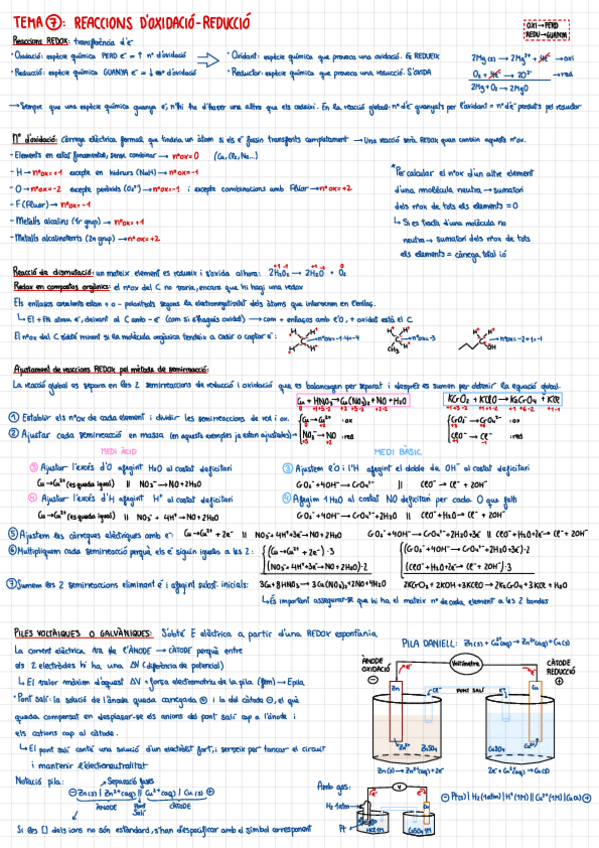 TEMA 7: REACCIONS D'OXIDACIÓ-REDUCCIÓ
OXI → PERD
REDU → GUANYA
Reaccions REDOX: transferència d'e⁻
· Oxidació: espècie química PERD e⁻ = ↑ nº d'oxidació
· Reducció: espècie química GUANYA e⁻ = ↓ nº d'oxidació
· Oxidant: espècie química que provoca una oxidació. Es REDUEIX
· Reductor: espècie química que provoca una reducció. S'OXIDA
2Mg → 2Mg²⁺ + 4e⁻ → oxi
O₂ + 4e⁻ → 2O²⁻ → red
2Mg + O₂ → 2MgO
→ Sempre que una espècie química guanya e⁻, n'hi ha d'haver una altra que els cedeixi. En la reacció global: nº d'e⁻ guanyats per l'oxidant = nº d'e⁻ perduts pel reductor
Nº d'oxidació: càrrega elèctrica formal que tindria un àtom si els e⁻ fossin transferits completament → Una reacció serà REDOX quan canviïn aquests nºox.
- Elements en estat fonamental, sense combinar → nºox = 0 (Cu, Cl₂, Na...)
- H → nºox = +1 excepte en hidrurs (NaH) → nºox = -1
- O → nºox = -2 excepte peròxids (O₂²⁻) → nºox = -1 i excepte combinacions amb Fluor → nºox = +2
- F (Fluor) → nºox = -1
- Metalls alcalins (1r grup) → nºox = +1
- Metalls alcalinoterris (2n grup) → nºox = +2
*Per calcular el nºox d'un altre element
d'una molècula neutra → sumatori
dels nºox de tots els elements = 0
↳ Si es tracta d'una molècula no
neutra → sumatori dels nºox de tots
els elements = càrrega total ió
Reacció de dismutació: un mateix element es redueix i s'oxida alhora: 2H₂O₂ → 2H₂O + O₂
Redox en compostos orgànics: el nºox del C no varia, encara que hi hagi una redox
Els enllaços covalents estan + o - polaritzats segons la electronegativitat dels àtoms que intervenen en l'enllaç.
↳ El + EN atrau e⁻, deixant al C amb - e⁻ (com si s'hagués oxidat) → com + enllaços amb l'O, + oxidat està el C
El nºox del C s'obté mirant si la molècula orgànica tendeix a cedir o captar e⁻:
→ nºox = -1·4 = -4
CH₃ → nºox = -3
OH → nºox = -2+1 = -1
Ajustament de reaccions REDOX pel mètode de semireacció:
La reacció global es separa en les 2 semireaccions de reducció i oxidació que es balancegen per separat i després es sumen per obtenir la equació global.
Cu + HNO₃ → Cu(NO₃)₂ + NO + H₂O
KCrO₂ + KClO → K₂CrO₄ + KCl
① Establir els nºox de cada element i dividir les semireaccions de red i ox.
Cu → Cu²⁺ :ox
CrO₂⁻ → CrO₄²⁻ :ox
② Ajustar cada semireacció en massa (en aquests exemples ja estan ajustades)
NO₃⁻ → NO :red
ClO⁻ → Cl⁻ :red
MEDI ÀCID
MEDI BÀSIC
③ Ajustar l'excés d'O afegint H₂O al costat deficitari
Cu → Cu²⁺ (es queda igual) || NO₃⁻ → NO + 2H₂O
④ Ajustar l'excés d'H afegint H⁺ al costat deficitari
Cu → Cu²⁺ (es queda igual) || NO₃⁻ + 4H⁺ → NO + 2H₂O
③ Ajustem l'O i l'H afegint el doble de OH⁻ al costat deficitari
CrO₂⁻ + 4OH⁻ → CrO₄²⁻ || ClO⁻ → Cl⁻ + 2OH⁻
④ Afegim 1 H₂O al costat NO deficitari per cada O que falti
CrO₂⁻ + 4OH⁻ → CrO₄²⁻ + 2H₂O || ClO⁻ + H₂O → Cl⁻ + 2OH⁻
⑤ Ajustem les càrregues elèctriques amb e⁻: Cu → Cu²⁺ + 2e⁻ || NO₃⁻ + 4H⁺ + 3e⁻ → NO + 2H₂O
CrO₂⁻ + 4OH⁻ → CrO₄²⁻ + 2H₂O + 3e⁻ || ClO⁻ + H₂O + 2e⁻ → Cl⁻ + 2OH⁻
⑥ Multipliquem cada semireacció perquè els e⁻ siguin iguals a les 2:
(Cu → Cu²⁺ + 2e⁻) · 3
(NO₃⁻ + 4H⁺ + 3e⁻ → NO + 2H₂O) · 2
(CrO₂⁻ + 4OH⁻ → CrO₄²⁻ + 2H₂O + 3e⁻) · 2
(ClO⁻ + H₂O + 2e⁻ → Cl⁻ + 2OH⁻) · 3
⑦ Sumem les 2 semireaccions eliminant e⁻ i afegint subst. inicials: 3Cu + 8HNO₃ → 3Cu(NO₃)₂ + 2NO + 4H₂O
2KCrO₂ + 2KOH + 3KClO → 2K₂CrO₄ + 3KCl + H₂O
↳ És important assegurar-se que hi ha el mateix nº de cada element a les 2 bandes
PILES VOLTAIQUES O GALVÀNIQUES: S'obté E elèctrica a partir d'una REDOX espontània
La corrent elèctrica va de l'ÀNODE → CÀTODE perquè entre
els 2 elèctrodes hi ha una ΔV (diferència de potencial)
↳ El valor màxim d'aquest ΔV = força electromotriu de la pila (fem) → Epila.
· Pont salí: la solució de l'ànode queda carregada ⊕ i la del càtode ⊖, el què
queda compensat en desplaçar-se els anions del pont salí cap a l'ànode i
els cations cap al càtode.
↳ El pont salí conté una solució d'un electròlit fort, i serveix per tancar el circuit
i mantenir l'electroneutralitat
Notació pila:
Separació fases
⊖ Zn(s) | Zn²⁺(aq) || Cu²⁺(aq) | Cu(s) ⊕
ÀNODE
Pont
Salí
CÀTODE
Si les [] dels ions no són estàndard, s'han d'especificar amb el símbol corresponent
PILA DANIELL: Zn(s) + Cu²⁺(aq) → Zn²⁺(aq) + Cu(s)
ÀNODE
OXIDACIÓ
⊖
Voltímetre
CÀTODE
REDUCCIÓ
⊕
Zn
Cl⁻
PONT SALÍ
Cu
Zn²⁺
ZnSO₄
CuSO₄
Cu²⁺
Zn(s) → Zn²⁺(aq) + 2e⁻
2e⁻ + Cu²⁺(aq) → Cu(s)
Amb gas:
V
H₂ 1atm
Cu
Pt
HCl 1M
CuSO₄ 1M
⊖ Pt(s) | H₂(1atm) | H⁺(1M) || Cu²⁺(1M) | Cu(s) ⊕